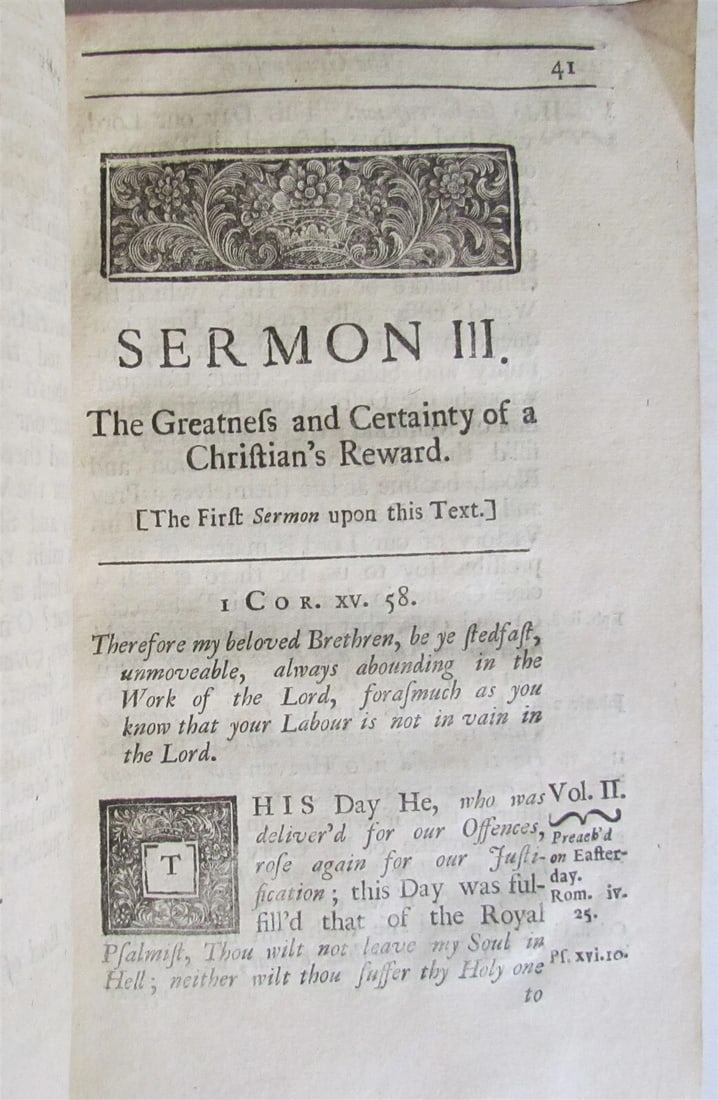 41
SERMON III.
The Greatneſs and Certainty of a
Chriſtian's Reward.
[The Firſt Sermon upon this Text.]
1 COR. XV. 58.
Therefore my beloved Brethren, be ye ſtedfaſt,
unmoveable, always abounding in the
Work of the Lord, foraſmuch as you
know that your Labour is not in vain in
the Lord.
THIS Day He, who was
deliver'd for our Offences,
roſe again for our Juſti-
fication; this Day was ful-
fill'd that of the Royal
Pſalmiſt, Thou wilt not leave my Soul in
Hell; neither wilt thou ſuffer thy Holy one
to
Vol. II.
Preach'd
on Eaſter-
day.
Rom. iv.
25.
Pſ. xvi.10.